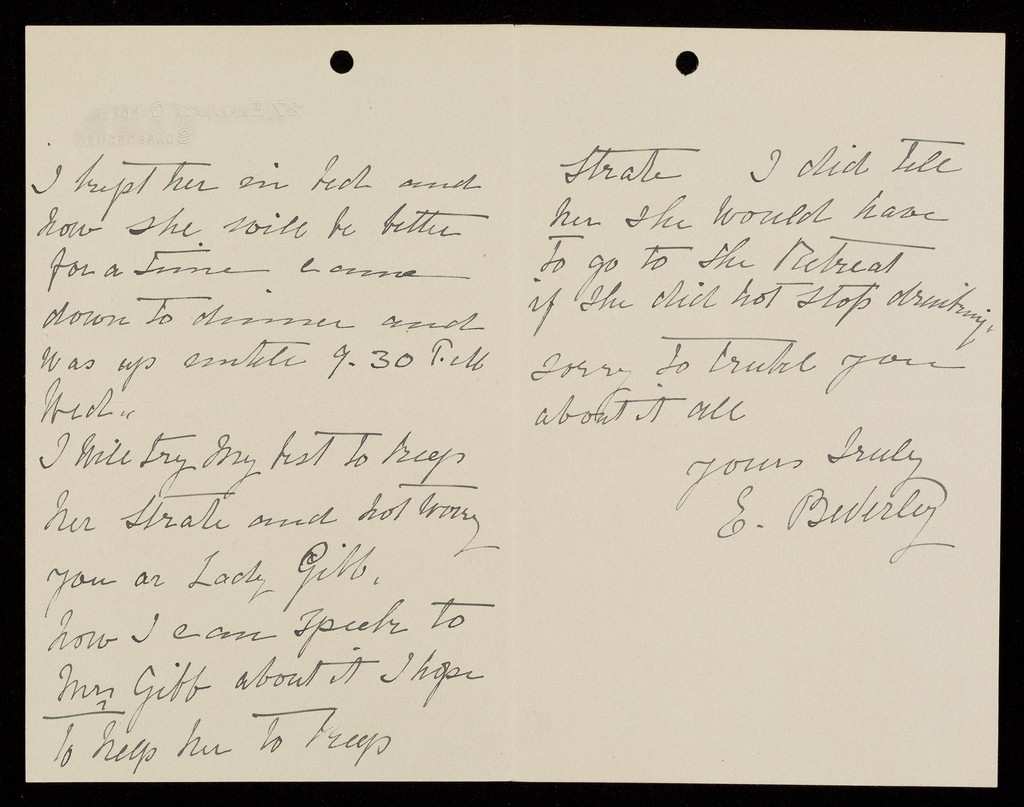 I kept her in bed and
now she will be better
for a time came
down to dinner and
was up untile 9.30 P.M
Wed..
I will try my best to keep
her strate and not worry
you or Lady Gibb.
now I can speek to
Mrs Gibb about it I hope
to help her to keep
strate I did tell
her she would have
to go to the Retreat
if she did not stop drinking.
sorry to trubel you
about it all
yours truly
E. Beverley